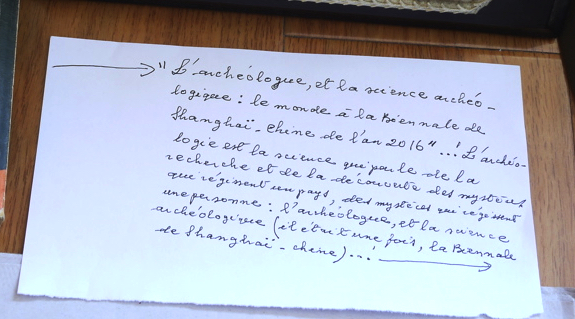 → "L'archéologue, et la science archéo-
logique : le monde à la Biennale de
Shanghaï - Chine de l'an 2016" ...! L'archéo-
logie est la science qui parle de la
recherche et de la découverte des mystères,
qui régissent un pays, des mystères qui régissent
une personne : l'archéologue, et la science
archéologique (il était une fois, la Biennale
de Shanghaï - Chine) ...! →